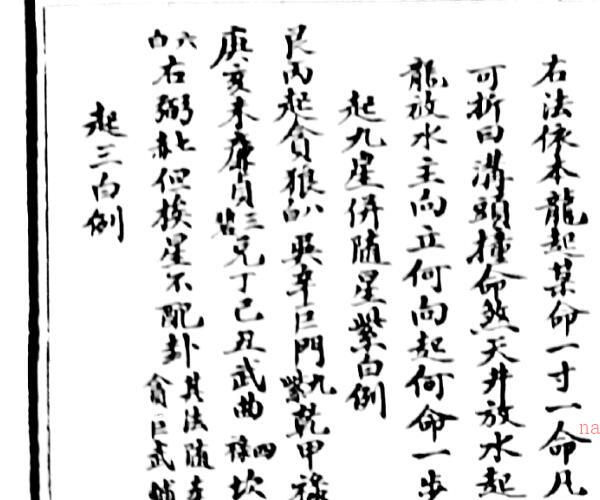 右法依本龍起某命一寸一命凡
可折曰溝頭撞命煞天井放水起
龍放水主向立何向起何命一步
起九星併随星紫白例
艮丙起貪狼八白巽辛巨門九紫乾甲祿
庚亥未廉貞三碧兑丁巳丑武曲四祿坎
六白右弼
但挨星不配卦其法随
貪巨武輔
起三白例
na